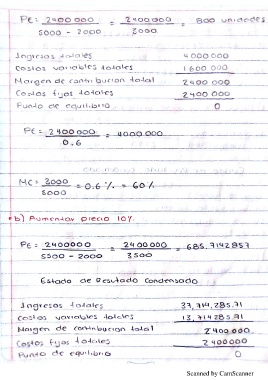 PE = 2400000 = 2400000 = 800 unidades
5000 - 2000 3000
Ingresos totales 4000000
Costos variables totales 1600000
Margen de contribucion total 2400000
Costos fijos totales 2400000
Punto de equilibrio 0
PE = 2400000 = 4000000
0.6
MC = 3000 = 0.6 % = 60%
5000
b) Aumentar precio 10%
PE = 2400000 = 2400000 = 685.7142857
5500 - 2000 3500
Estado de Resultado Condensado
Ingresos totales 37,714,285.71
Costos variables totales 13,714285.71
Margen de contribucion total 2400000
Costos fijos totales 2400000
Punto de equilibrio 0
Scanned by CamScanner